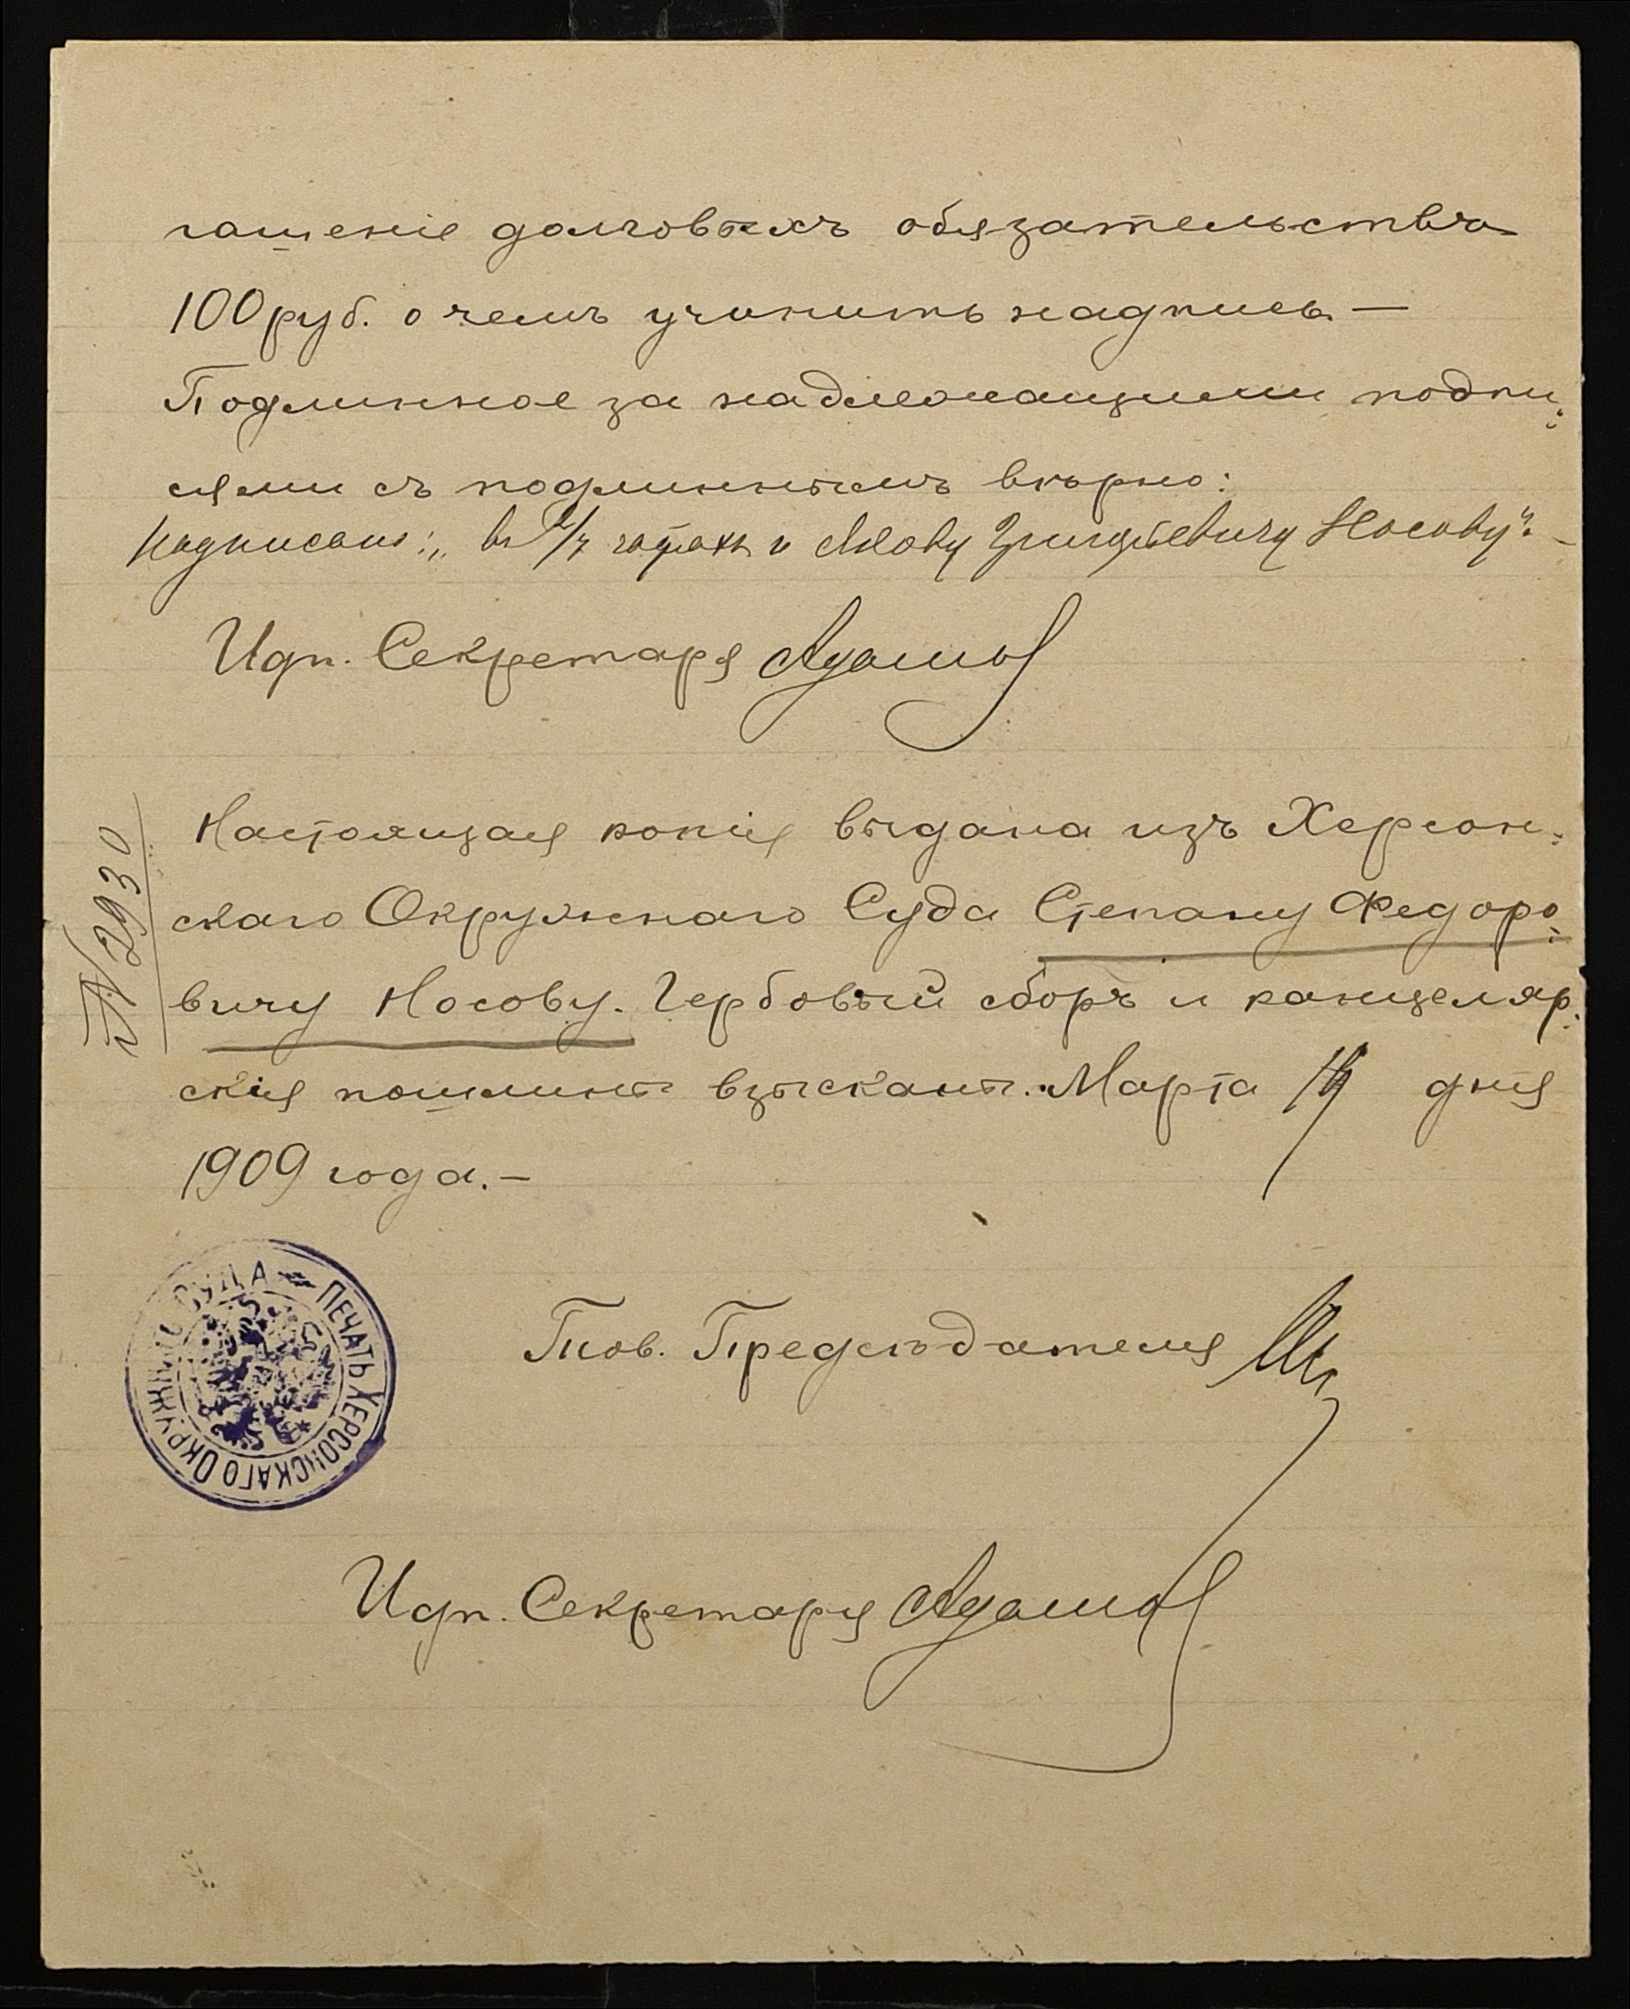 гашеніе долговыхъ обязательствъ
100 руб. о чемъ учинить надпись —
Подлинное за надлежащими подпи=
сями съ подлиннымъ вѣрно:
Надписано: „ въ 2/7 частяхъ и Якову Григорьевичу Носову". —
И. д. п. Секретаря
Настоящая копія выдана изъ Херсон=
скаго Окружнаго Суда Степану Федоро=
вичу Носову. Гербовый сборъ и канцеляр=
скія пошлины взысканы. Марта дня
1909 года. —
№ 2930
ПЕЧАТЬ ХЕРСОНСКАГО ОКРУЖНАГО СУДА
Тов. Предсѣдателя
И. д. п. Секретаря